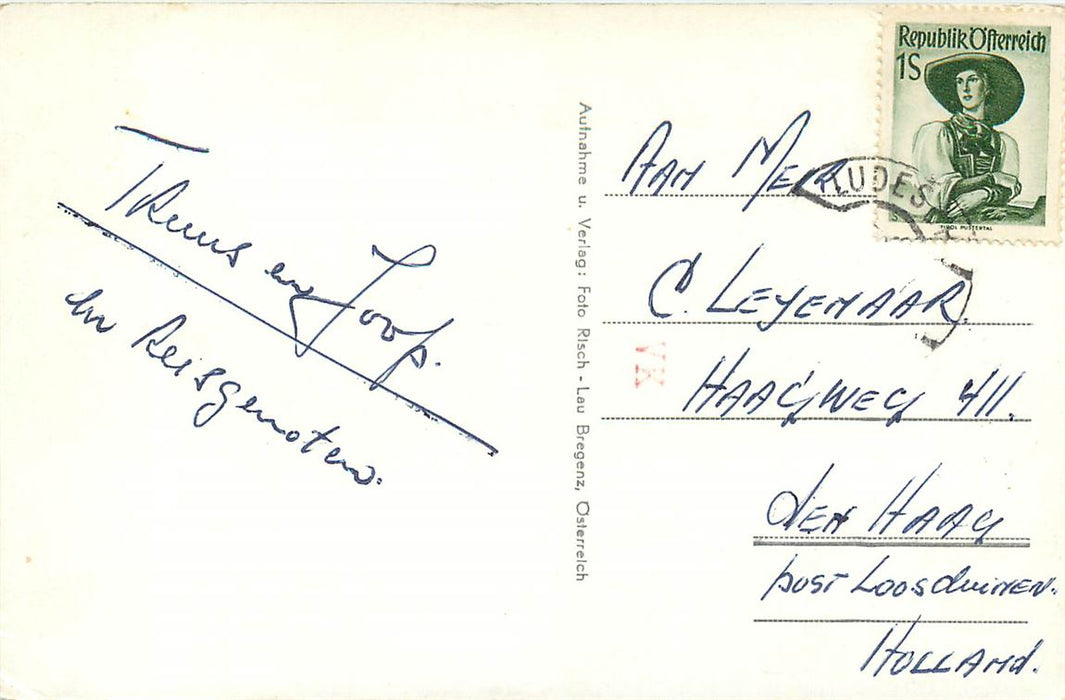 Truus en Joop.
en Reisgenoten.
Aufnahme u. Verlag: Foto Risch - Lau Bregenz, Österreich
Republik Österreich
1S
TIROL PUSTERTAL
LUDES
AAN MEJ
C. LEYENAAR
VK
HAAGWEG 411.
DEN HAAG
post Loosduinen.
HOLLAND.